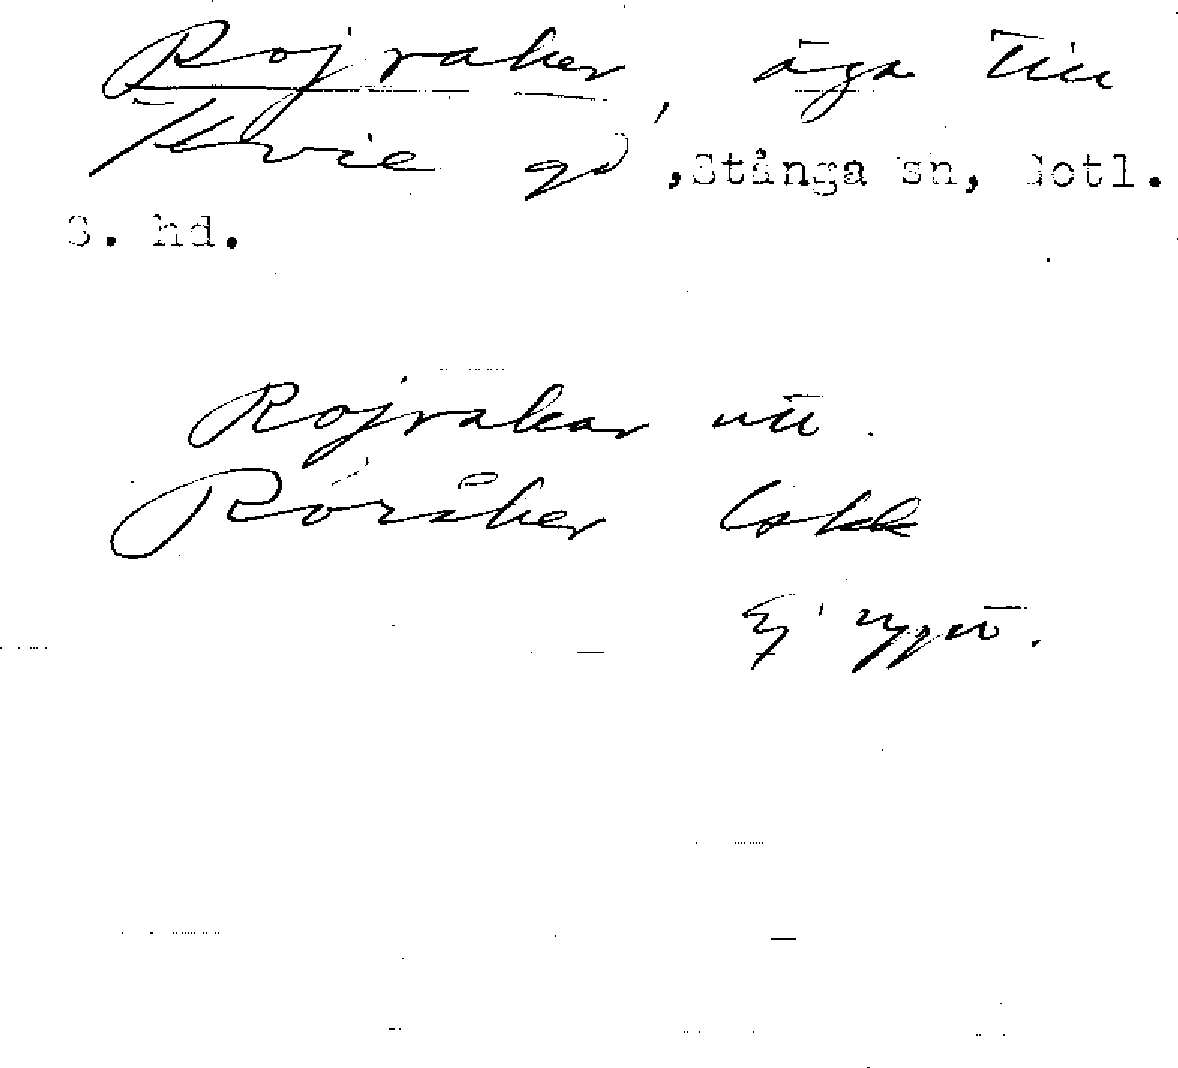 Rojraker, äga till
Kvie gd, Stånga sn, Gotl.
S. hd.
Rojrakar utt.
Röråker Lokk
Ej uppt.